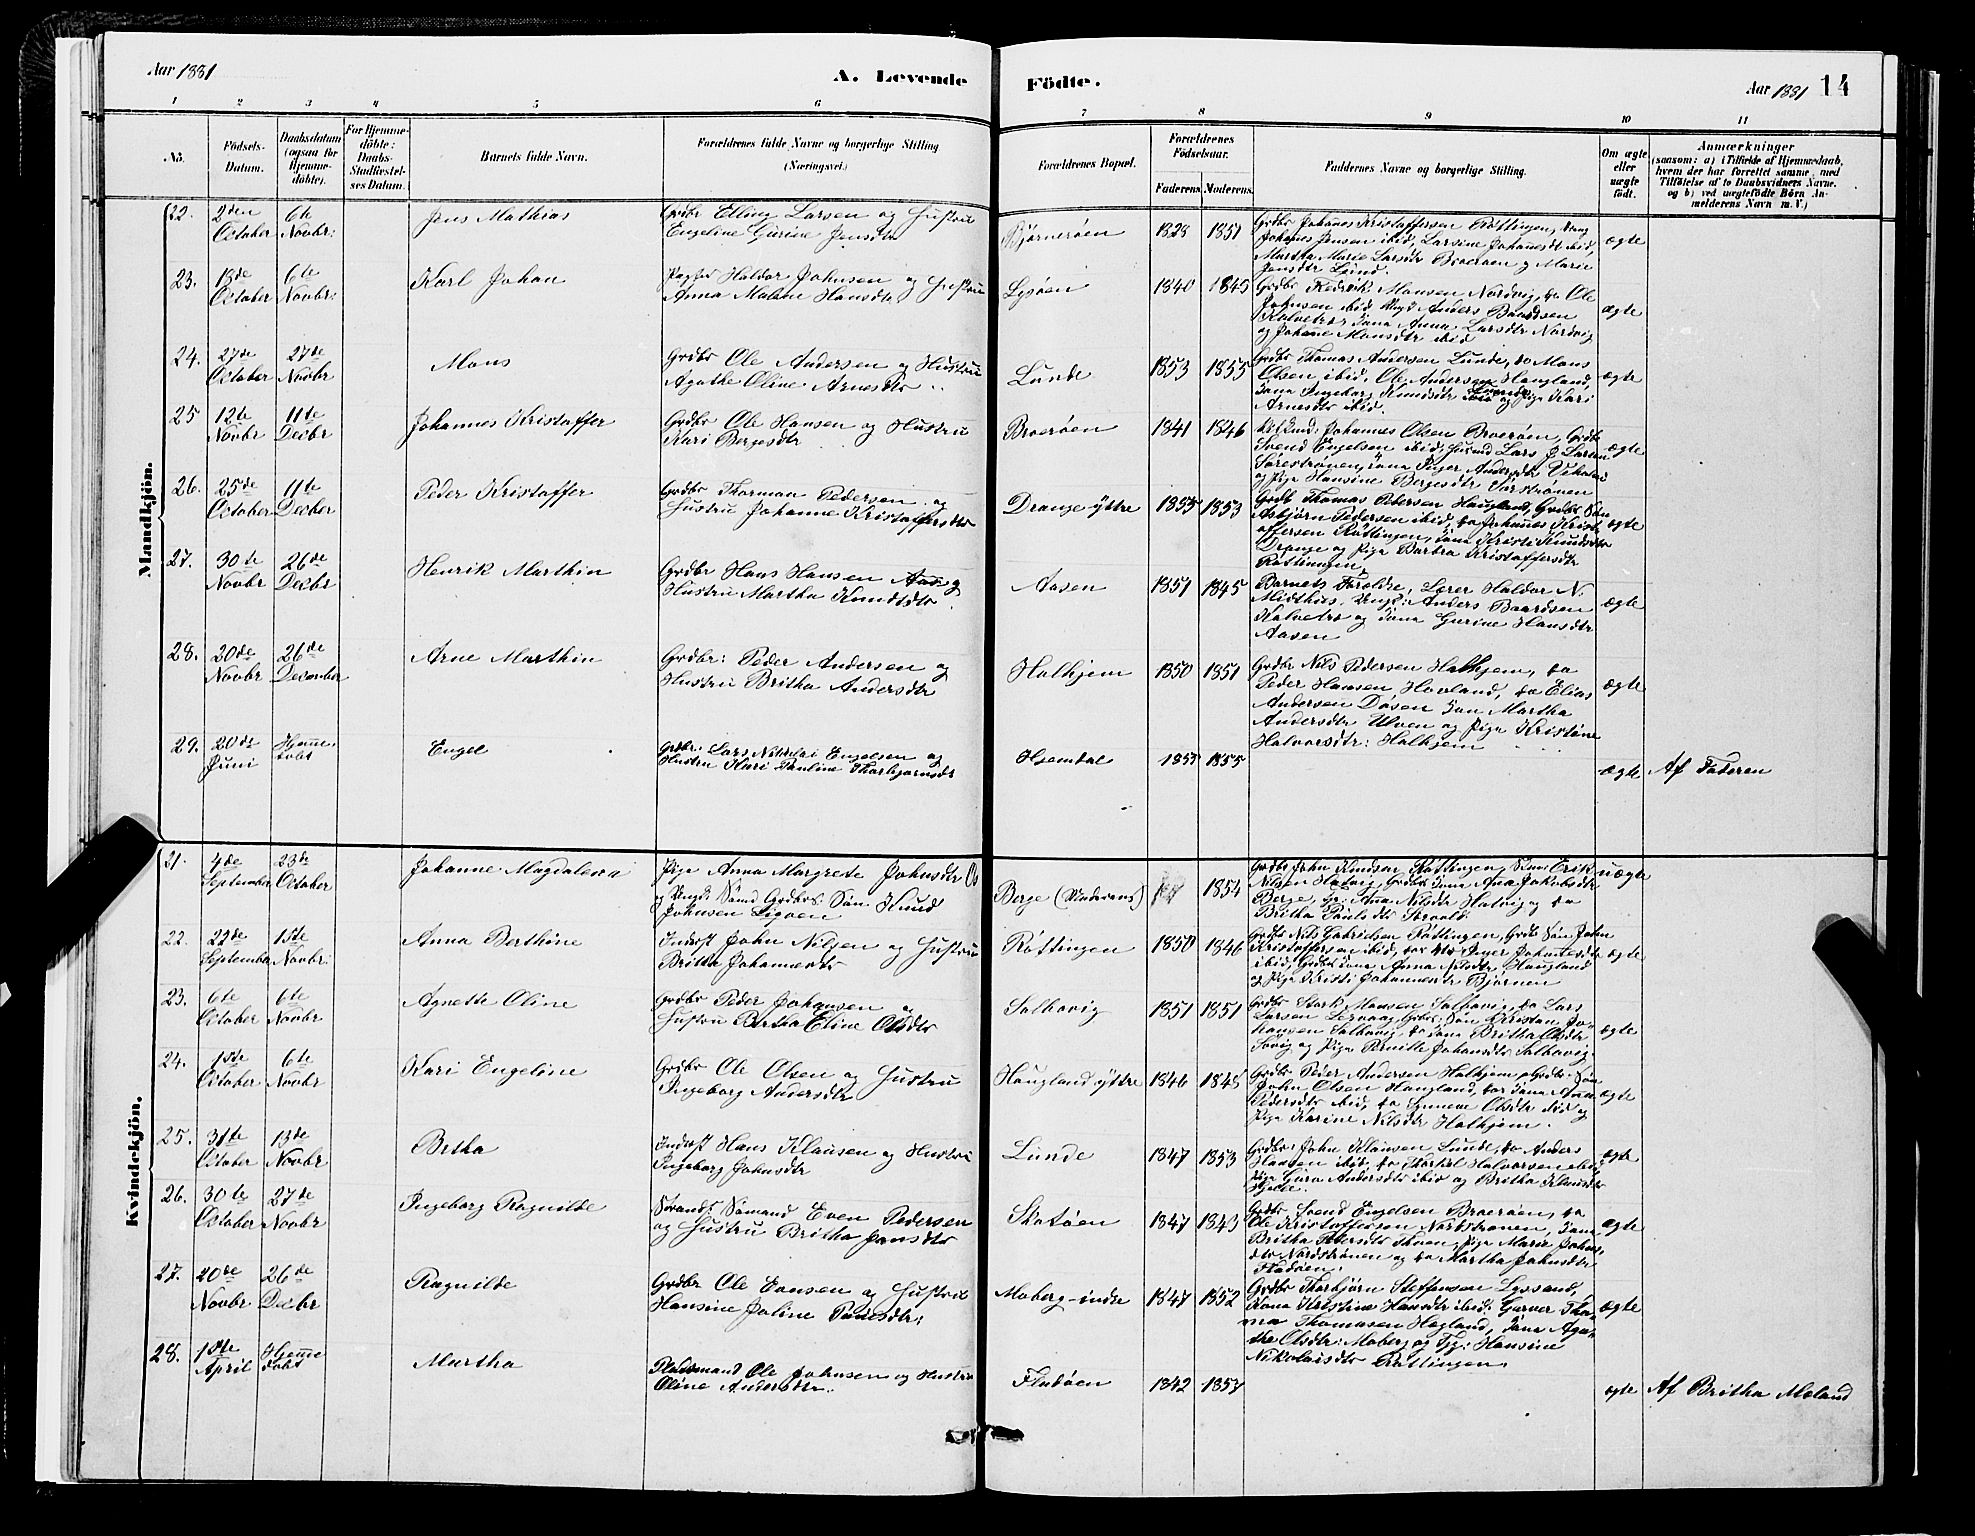 Aar 1881
A. Levende Födte.
Aar 1881 14
1 2 3 4 5 6 7 8 9 10 11
No.
Födsels-Datum.
Daabsdatum (ogsaa for Hjemme-döbte).
For Hjemme-döbte: Daabs-Stadfæstel-ses Datum.
Barnets fulde Navn.
Forældrenes fulde Navne og borgerlige Stilling (Næringsvei.)
Forældrenes Bopæl.
Forældrenes Födselsaar.
Faderens. Moderens.
Faddernes Navne og borgerlige Stilling.
Om ægte eller uægte födt.
Anmærkninger
(saasom: a) i Tilfælde af Hjemmedaab, hvem der har forrettet samme, med Tilföielse af to Daabsvidners Navne. og b) ved uægtefödte Börn An-melderens Navn m. V.)
Mandkjön.
22. 2den October 6te Novbr: Jens Mathias
Grdbr Elling Larsen og Hustru
Engeline Gurine Jensdtr
Bjørnerøen 1828 1851
Grdbr Johanes Kristoffersen Røttingen,
Johanes Jensen ibid, Larsine Johanesdt ibid,
Martha Marie Larsdtr Broerøen og Marie
Jensdtr
ægte
23. 18de October 6te Novbr: Karl Johan
Haldor Johnsen og Hustru
Anna Malene Hansdtr
Lysøen 1840 1845
Grdbr Fredrik Monsen Nordvig, fa Ole
Johnsen ibid Ungk Anders Baardsen
Kalvetræ Kona Anna Larsdtr Nordvig
og Johane Monsdtr ibid
ægte
24. 27de October 27de Novbr Mons
Grdbr Ole Andersen og Hustru
Agathe Oline Arnesdtr
Lunde 1853 1855
Grdbr Thomas Andersen Lunde, fa Mons
Olsen ibid, Ole Andersen Haugland,
Kona Ingeborg Knudsdtr Lunde og Pige Kari
Arnesdtr ibid.
ægte
25 12te Novbr 11te Decbr Johannes Kristoffer
Grdbr Ole Hansen og Hustru
Kari Bergesdtr
Broerøen 1841 1846
Johannes Olsen Broerøen, Grdbr
Svend Engelsen ibid, Lars J Larsen
Andersdtr
og Pige Hansine Bergesdtr
ægte
26. 25de October 11te Decber Peder Kristoffer
Grdbr Thormon Pedersen og
Hustru Johanne Kristoffersdtr
Drange ýttre 1855 1853
Grdb Thomas Petersen Haugland, Grdbr Søn
Asbjørn Pedersen ibid, fa Johanes Krist
offersen Røttingen, Kona Kristi Knudsdtr
Drange og Pige Barbra Kristoffersdtr
Røttingen
ægte
27. 30te Novbr 26de Decbr Henrik Marthin
Grdbr Hans Hansen Aas og
Hustru Martha Knudsdtr
Aasen 1851 1845
Barnets Forældre, Lærer Haldor N.
Midthus, Ungk: Anders Baardsen
Kalvetræ og Kona Gurine Hansdtr
Aasen
ægte
28. 20de Novbr 26de December Arne Marthin
Grdbr: Peder Andersen og
Hustru Britha Andersdtr
Halhjem 1850 1851
Grdbr Nils Pedersen Halhjem, fa
Peder Hansen Hovland, fa Elias
Andersen Døsen Kon Martha
Andersdtr Ulven og Pige Kristine
Halvorsdtr: Halhjem
ægte
29. 20de Juni Hjemme-døbt Engel
Grdbr: Lars Nikolai Engelsen og
Hustru Kari Pauline Thorbjørnsdt
Hjemdal 1855 1855
ægte Af Faderen
Kvindekjön.
21. 4de September 23de October Johanne Magdalena
Pige Anna Margrete Johnsdtr
og Ungk: Sømd Grdbrs Søn Knud
Johnsen Ligøen
Berge (Moderens) 1854
Grdbr John Knudsen Røttingen, Erik
Nilsen Hatvig, Grdbr Kona Ana Jakobsdtr
Berge, Ana Nilsdtr Hatvig og fa
Britha Paulsdtr
uægte
22. 22de September 1ste Novbr: Anna Berthine
Inderst John Nilsen og Hustru
Britha Johannesdtr
Røttingen 1850 1846
Grdbr Nils Gabrielsen Røttingen, Grdb Søn John
Kristoffersen ibid, Inger Johnsdtr
ibid, Grdbr Kona Anna Nilsdtr Haugland
og Pige Kristi Johannesdtr Bjørnen
ægte
23. 6te October 6te Novbr Agnethe Oline
Grdbr Peder Johansen og
Hustru Bertha Eline Olsdtr
Solbovig 1851 1851
Grdbr Stark Monsen Solbovig, fa Lars
Larsen Lervaag, Grdbr Søn Kristian Jo-
hansen Solbovig, fa Kona Britha Olsdtr
Søvig og Pige Pernille Johansdtr Solbovig
ægte
24. 1ste October 6te Novbr Kari Engeline
Grdbr Ole Olsen og Hustru
Ingeborg Andersdtr
Haugland ýttre 1846 1845
Grdbr Peder Andersen Halhjem Grdbr Søn
John Olsen Haugland, Kona Ana
Pedersdtr ibid, fa Synneve Olsdtr ibid og
Pige Karine Nilsdtr Halhjem.
ægte
25. 31te October 13de Novbr Brtha
Inderst Hans Klausen og Hustru
Ingeborg Johnsdtr
Lunde 1847 1853
Grdbr: John Klausen Lunde, fa Anders
Hansen ibid, fa Thorkel Halvorsen ibid
Pige Guro Andersdtr ibid og Britha Klausdtr
Hjelle.
ægte
26. 30te October 27de Novbr Ingeborg Ragnilde
Strands. Sømand Even Pedersen
og Hustru Britha Jansdtr
Skotøen 1847 1843
Grdbr Svend Engelsen Broerøen, fa
Ole Kristoffersen Nordstrønen, Kona
Britha Pedersdtr Pige Marie Johns
dtr Nordstrønen og fa Martha Johnsdtr
Fladøen.
ægte
27. 20de Novbr 26de Decbr Ragnilde
Grdbr Ole Evensen og Hustru
Hansine Joline Paulsdtr:
Moberg-indre 1847 1852
Grdbr Thorbjørn Steffensen Lyssand,
Kona Kristine Hansdtr ibid. Garver Tho-
mas Thomasen Hegland, Kona Aga-
the Olsdtr: Moberg og Tjg: Hansine
Nikolaisdtr Røttingen
ægte
28. 1ste April Hjemme døbt Martha
Pladsmand Ole Johnsen og Hustru
Oline Andersdtr
Fladøen 1842 1857
ægte Af Britha Moland